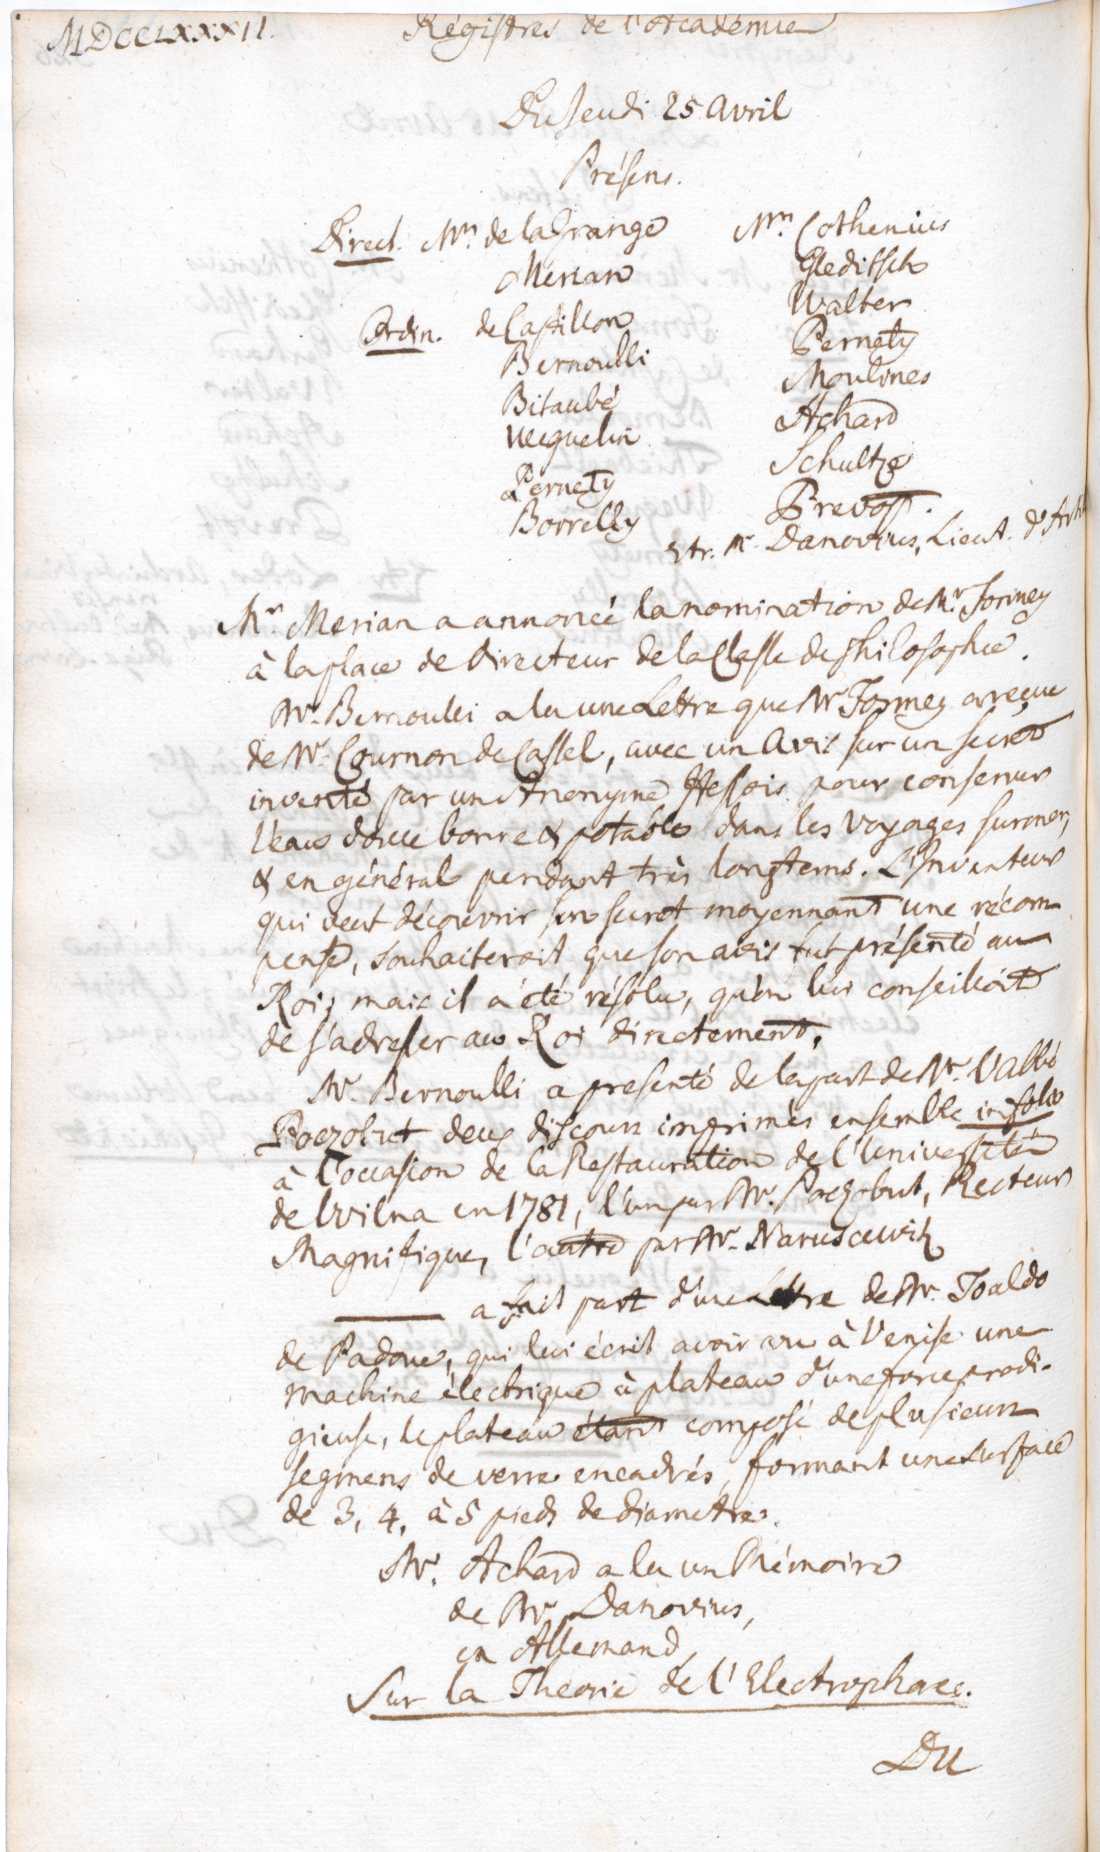 MDCCLXXXII.
Régistres de l'Academie
Du Jeudi 25 Avril
Présens.
Direct. Mrs de la Grange
Merian
Ordin. de Castillon
Bernoulli
Bitaubé
Weguelin
Pernety
Borrelly
Mrs Cothenius
Gleditsch
Walter
Pernety
Moulines
Achard
Schultze
Prevost.
Etr. Mr. Danovius, Lieut. d'Artil
Mr. Merian a annoncé la nomination de Mr. Formey
à la place de Directeur de la Classe de Philosophie.
Mr. Bernoulli a lu une Lettre que Mr Formey a reçue
de Mr. Cournon de Cassel, avec un Avis sur un secret
inventé par un Anonyme Hessois pour conserver
l'eau douce bonne & potable dans les Voyages sur mer,
& en général pendant très longtems. L'Inventeur
qui veut découvrir son secret moyennant une récom
pense, souhaiteroit que son avis fut présenté au
Roi; mais il a été résolu, qu'on lui conseilloit
de s'adresser au Roi directement.
Mr. Bernoulli a presenté de la part de Mr. l'Abbé
Poczobut deux discours imprimés ensemble in folio
à l'occasion de la Restauration de l'Université
de Wilna en 1781, l'un par Mr. Poczobut, Recteur
Magnifique, l'autre par Mr. Naruscewitz
——— a fait part d'une Lettre de Mr. Toaldo
de Padoue, qui lui écrit avoir vu à Venise une
machine électrique à plateau d'une force prodi-
gieuse, le plateau étant composé de plusieurs
segmens de verre encadrés, formant une surface
de 3, 4, à 5 pieds de diametre.
Mr. Achard a lu un Mémoire
de Mr Danovius,
en Allemand,
Sur la Théorie de l'Electrophore.
Du